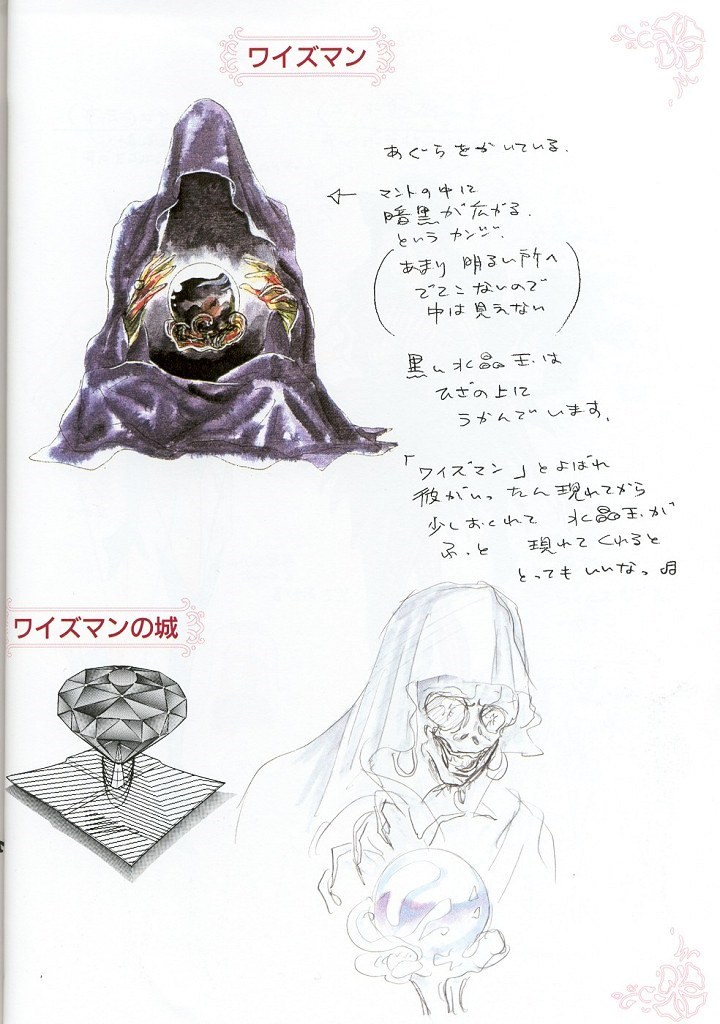 ワイズマン
あぐらをかいている.
← マントの中に
暗黒が広がる.
という カンジ.
(あまり 明るい所へ
でてこないので
中は見えない)
黒い水晶玉は
ひざの上に
うかんでいます.
「ワイズマン」とよばれ
彼がいったん現れてから
少しおくれて 水晶玉が
ふっと 現れてくれると
とってもいいなっ
ワイズマンの城